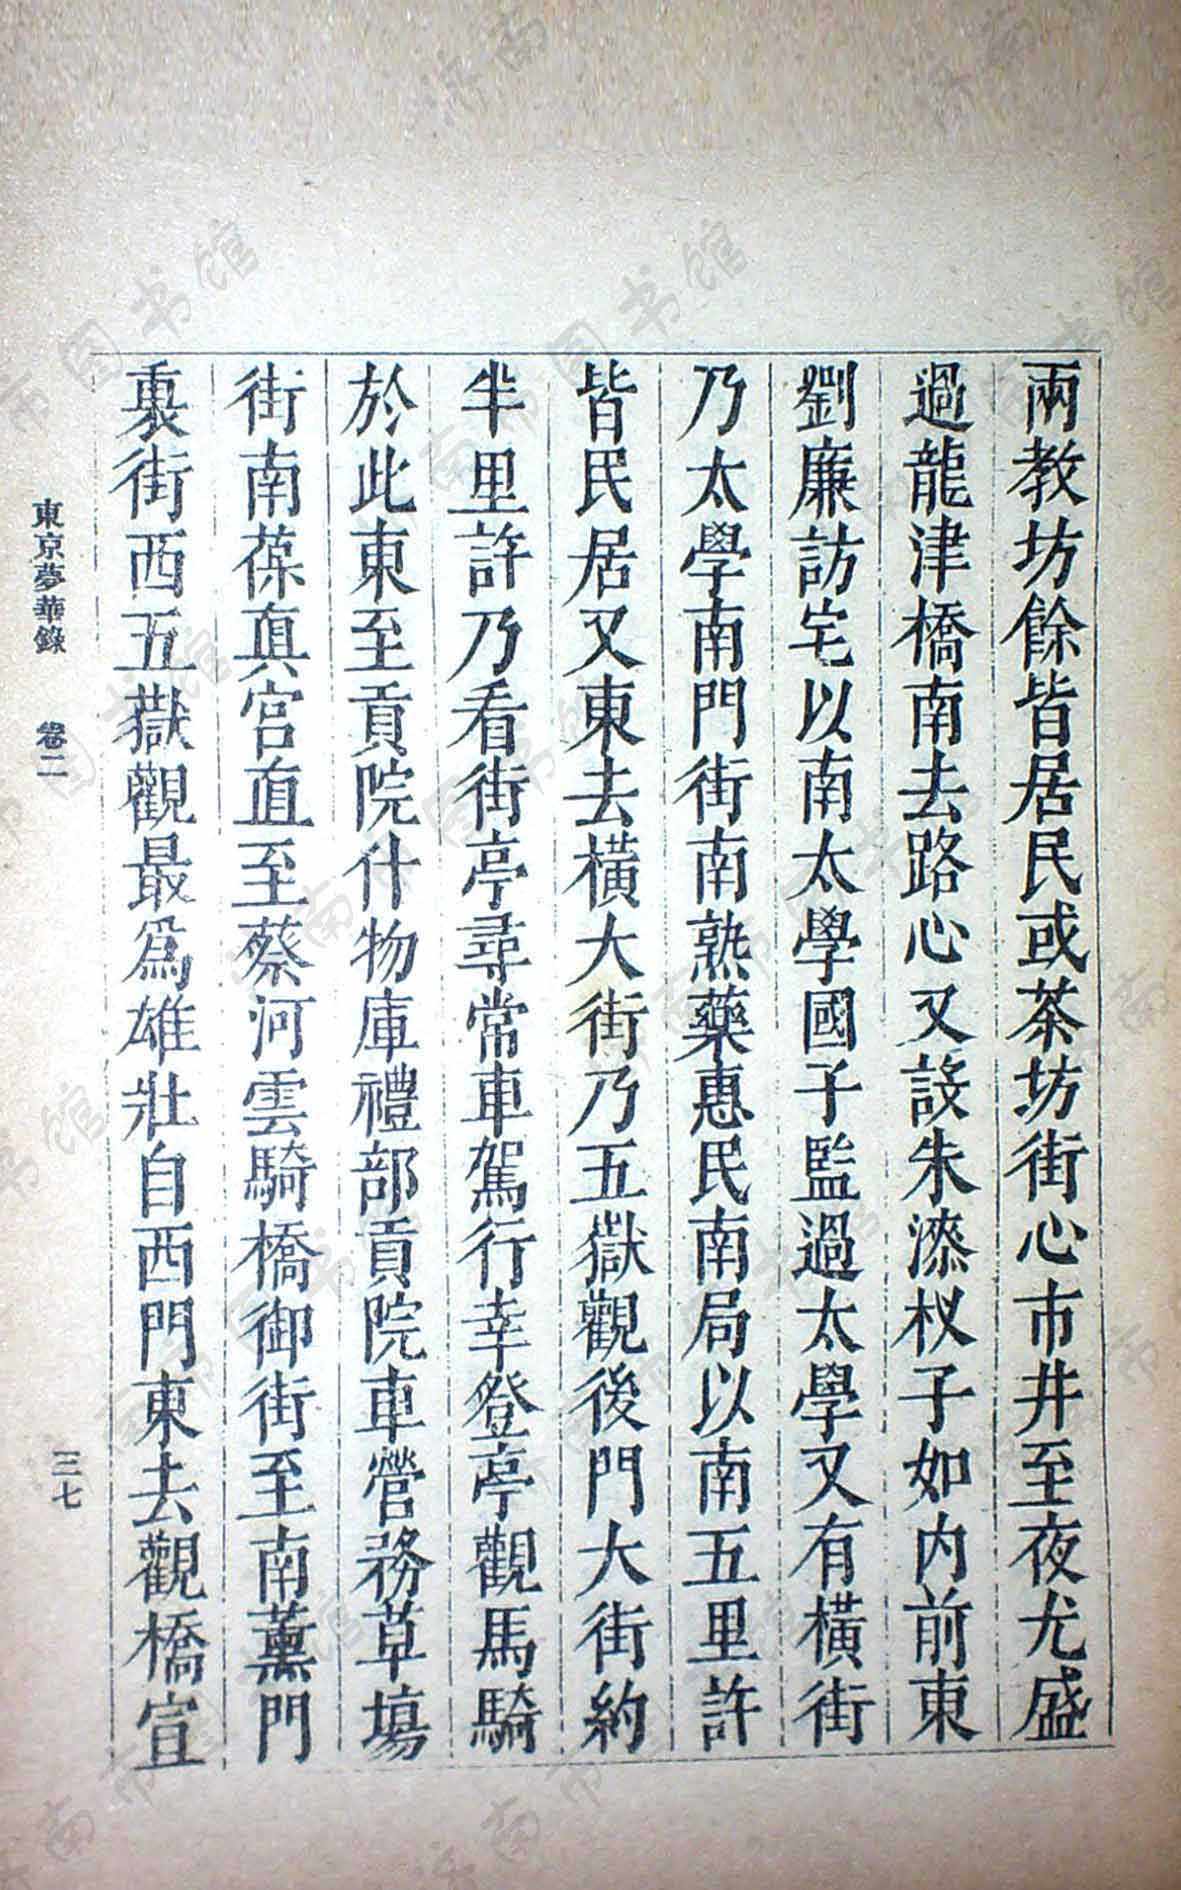 兩教坊餘皆居民或茶坊街心市井至夜尤盛
過龍津橋南去路心又設朱漆杈子如內前東
劉廉訪宅以南太學國子監過太學又有橫街
乃太學南門街南熟藥惠民南局以南五里許
皆民居又東去橫大街乃五嶽觀後門大街約
半里許乃看街亭尋常車駕行幸登亭觀馬騎
於此東至貢院什物庫禮部貢院車營務草場
街南葆真宮直至蔡河雲騎橋御街至南薰門
裏街西五嶽觀最為雄壯自西門東去觀橋宣
東京夢華錄 卷二 三七
济南市图书馆